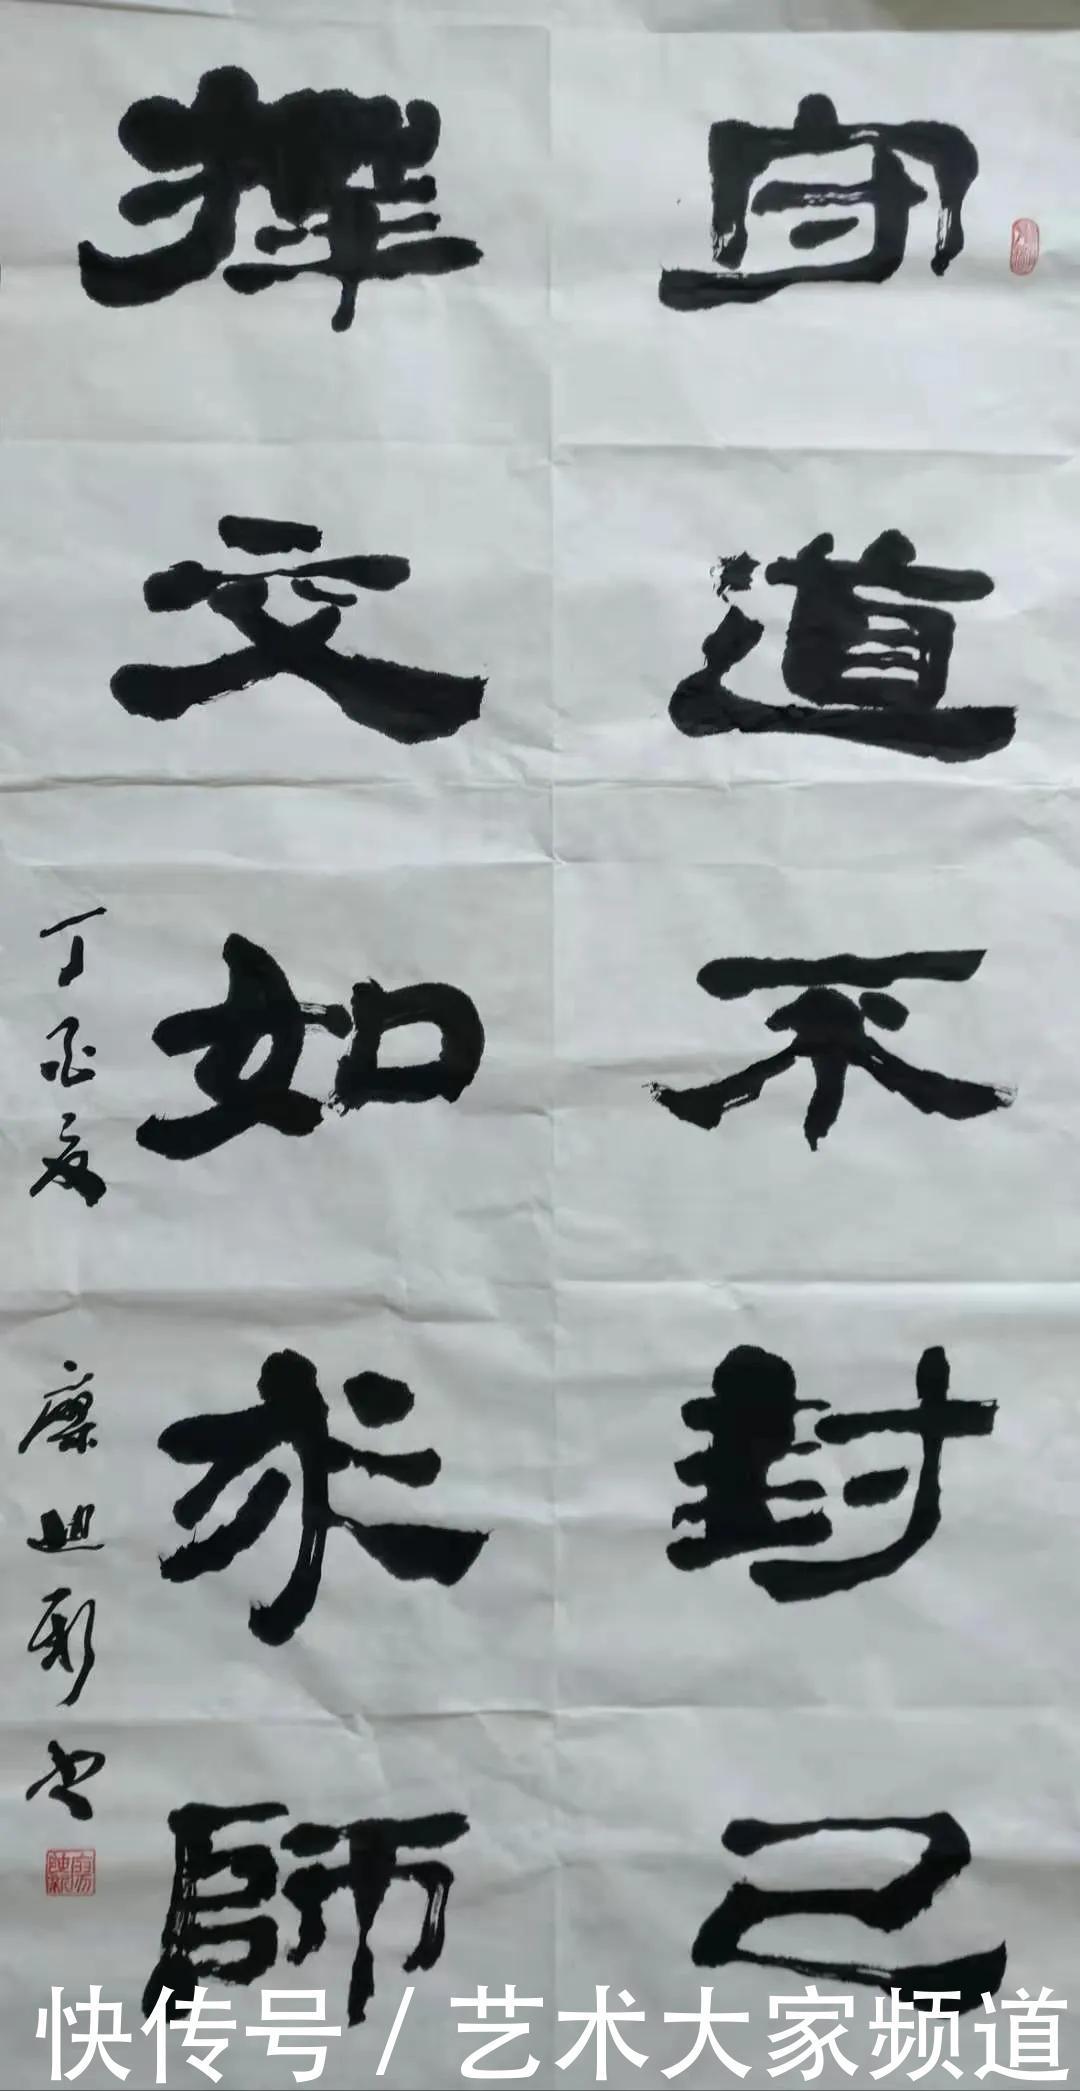 守道不封己
擇交如求師
丁酉夏 廖 彩书
快传号 / 艺术大家频道